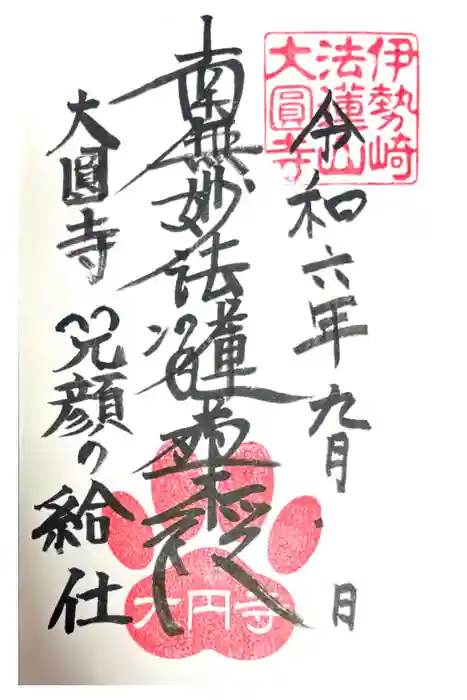 伊勢崎
法蓮山
大圓寺
令和六年九月 日
南無妙法蓮華経
大圓寺 笑顔の給仕
大円寺